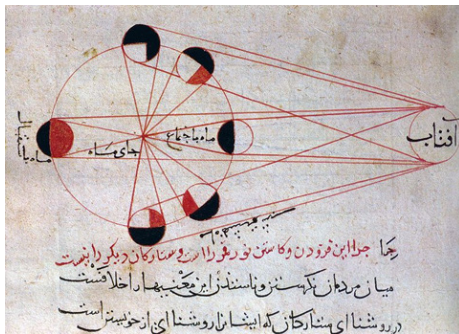 افتاب
ماه باجتماع
جای ماه
ماه باستقبال
چرا این فزودن و کاستن نور قمر راست و ستارکان دیکر را نیست
میان مردمان نکرستن این معنیها خلافست
در روشنای ستارکان که ایشانرا روشنای از خویشتن است